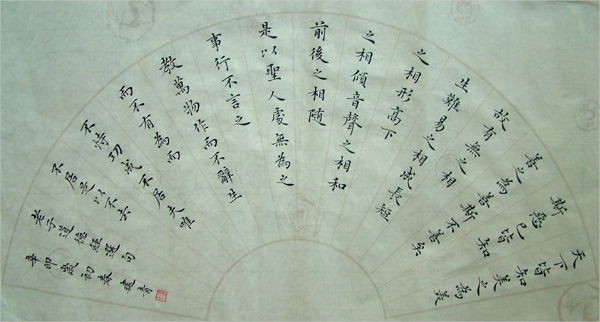 天下皆知美之為美
斯惡已皆知
善之為善斯不善矣
故有無之相
生難易之相成長短
之相形高下
之相傾音聲之相和
前後之相隨
是以聖人處無為之
事行不言之
教萬物作而不辭生
而不有為而
不恃功成不居夫唯
不居是以不去
老子道德經選句
辛卯歲初春